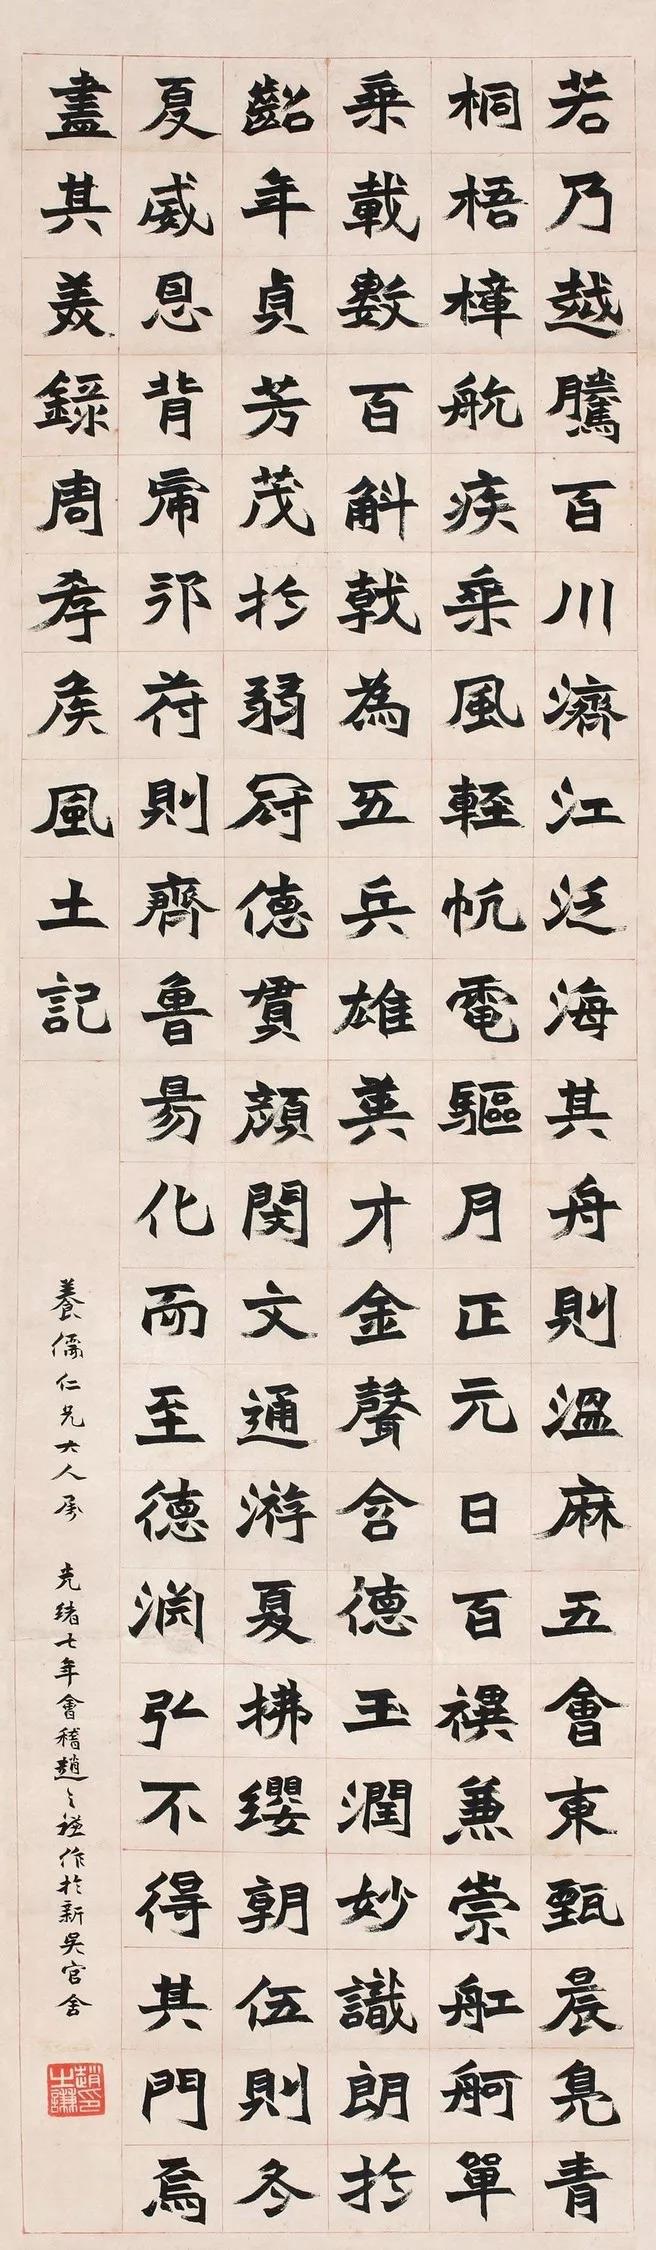 若乃越騰百川濟江泛海其舟則溫麻五會東甄晨鳧青
桐梧樟航疾乘風輕帆電驅月正元日百禩兼崇舡舸單
乘載數百斛戟為五兵雄英才金聲含德玉潤妙識朗於
齠年貞芳茂於弱冠德貫顏閔文通游夏拂纓朝伍則冬
夏威恩背帝邗苻則齊魯易化而至德渊弘不得其門焉
盡其美錄周孝侯風土記
養儒仁兄大人属
光緒七年會稽趙之謙作於新吳官舍
趙之謙印